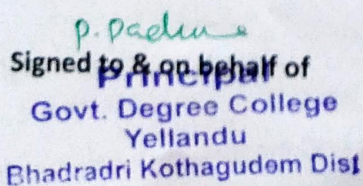 P. Padma
Signed to & on behalf of
Principal
Govt. Degree College
Yellandu
Bhadradri Kothagudem Dist